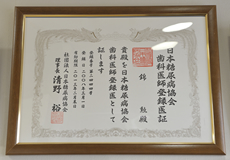 日本糖尿病協会
歯科医師登録医証
錦 勲殿
貴殿を日本糖尿病協会
歯科医師登録医として
証します
社団法人日本糖尿病協会
理事長 清野 裕